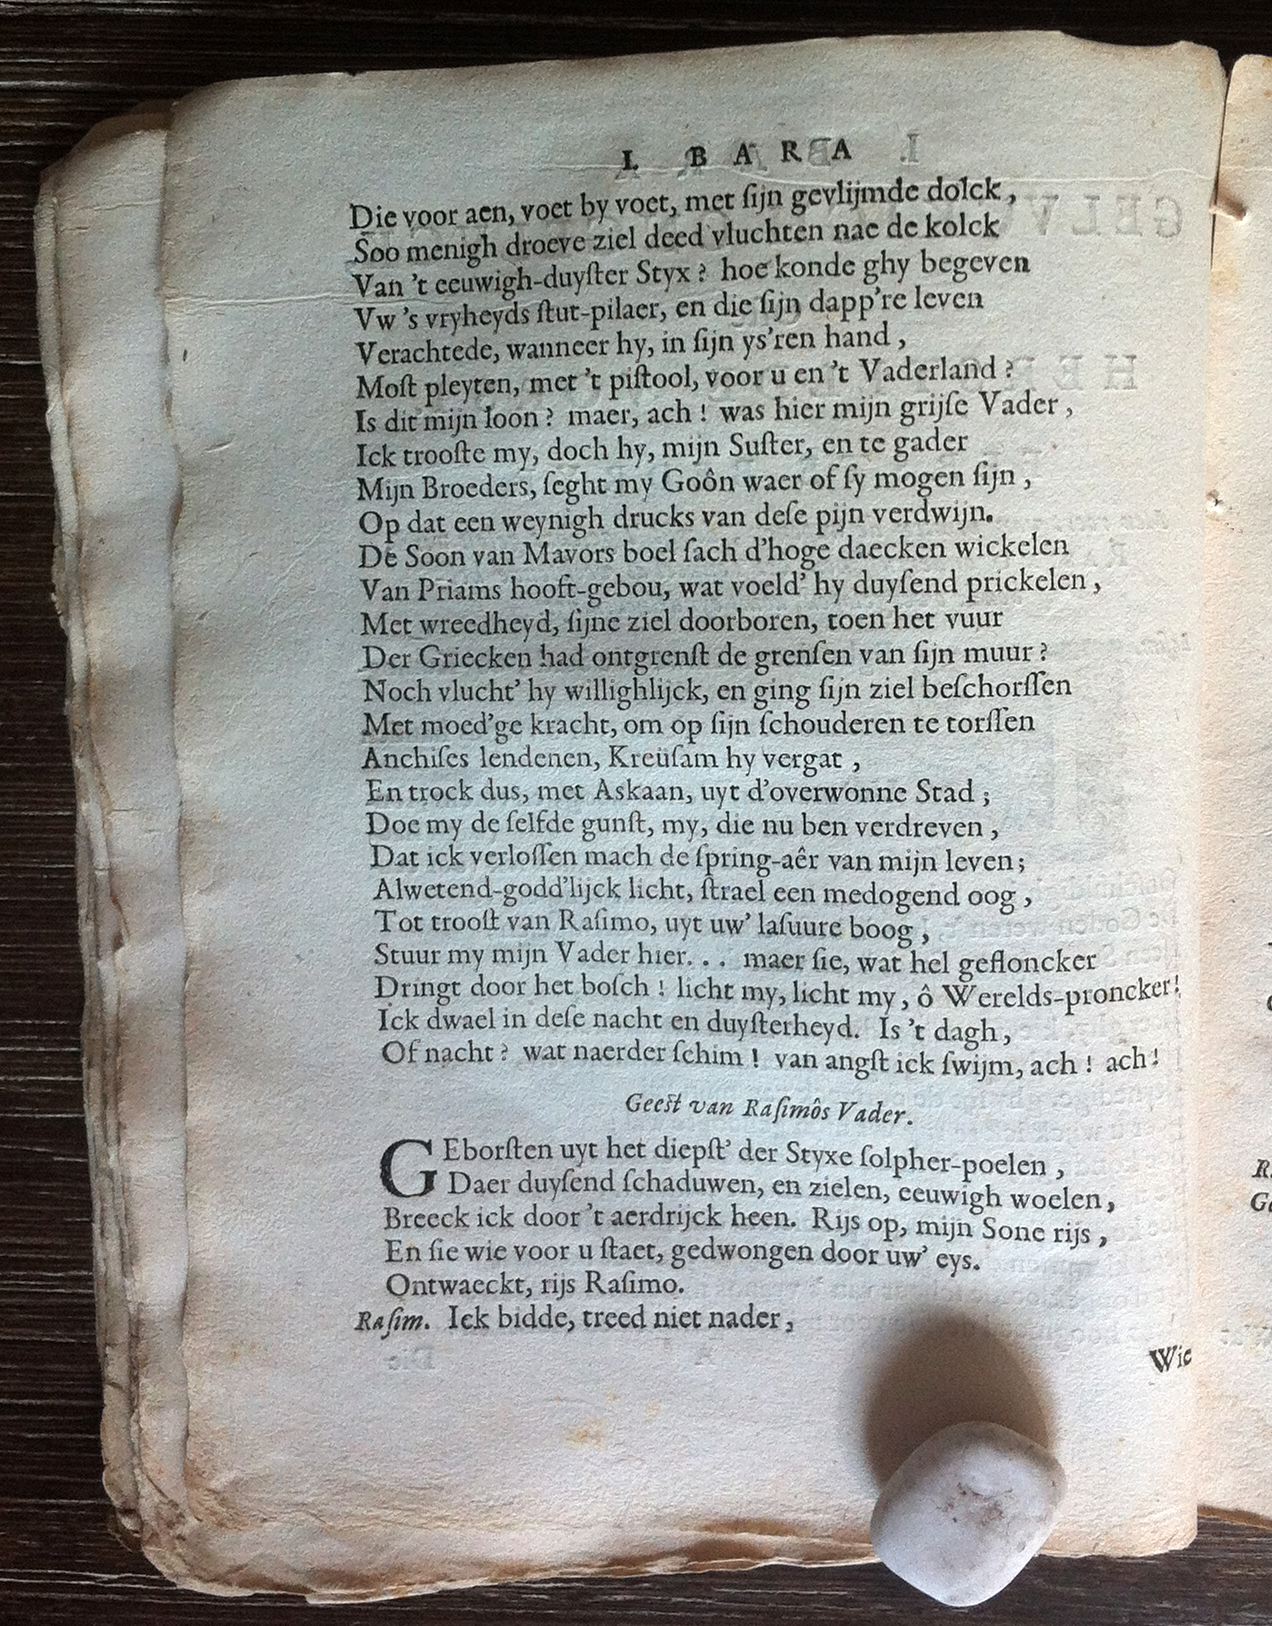 I. BARA
Die voor aen, voet by voet, met ſijn gevlijmde dolck,
Soo menigh droeve ziel deed vluchten nae de kolck
Van 't eeuwigh-duyſter Styx? hoe konde ghy begeven
Vw 's vryheyds ſtut-pilaer, en die ſijn dapp're leven
Verachtede, wanneer hy, in ſijn ys'ren hand,
Moſt pleyten, met 't piſtool, voor u en 't Vaderland?
Is dit mijn loon? maer, ach! was hier mijn grijſe Vader,
Ick trooſte my, doch hy, mijn Suſter, en te gader
Mijn Broeders, ſeght my Goôn waer of ſy mogen ſijn,
Op dat een weynigh drucks van deſe pijn verdwijn.
De Soon van Mavors boel ſach d'hoge daecken wickelen
Van Priams hooft-gebou, wat voeld' hy duyſend prickelen,
Met wreedheyd, ſijne ziel doorboren, toen het vuur
Der Griecken had ontgrenſt de grenſen van ſijn muur?
Noch vlucht' hy willighlijck, en ging ſijn ziel beſchorſſen
Met moed'ge kracht, om op ſijn ſchouderen te torſſen
Anchiſes lendenen, Kreüſam hy vergat,
En trock dus, met Askaan, uyt d'overwonne Stad;
Doe my de ſelfde gunſt, my, die nu ben verdreven,
Dat ick verloſſen mach de ſpring-aêr van mijn leven;
Alwetend-godd'lijck licht, ſtrael een medogend oog,
Tot trooſt van Raſimo, uyt uw' laſuure boog,
Stuur my mijn Vader hier... maer ſie, wat hel gefloncker
Dringt door het boſch! licht my, licht my, ô Werelds-proncker!
Ick dwael in deſe nacht en duyſterheyd. Is 't dagh,
Of nacht? wat naerder ſchim! van angſt ick ſwijm, ach! ach!
Geeſt van Raſimôs Vader.
GEborſten uyt het diepſt' der Styxe ſolpher-poelen,
Daer duyſend ſchaduwen, en zielen, eeuwigh woelen,
Breeck ick door 't aerdrijck heen. Rijs op, mijn Sone rijs,
En ſie wie voor u ſtaet, gedwongen door uw' eys.
Ontwaeckt, rijs Raſimo.
Raſim. Ick bidde, treed niet nader,
Wie